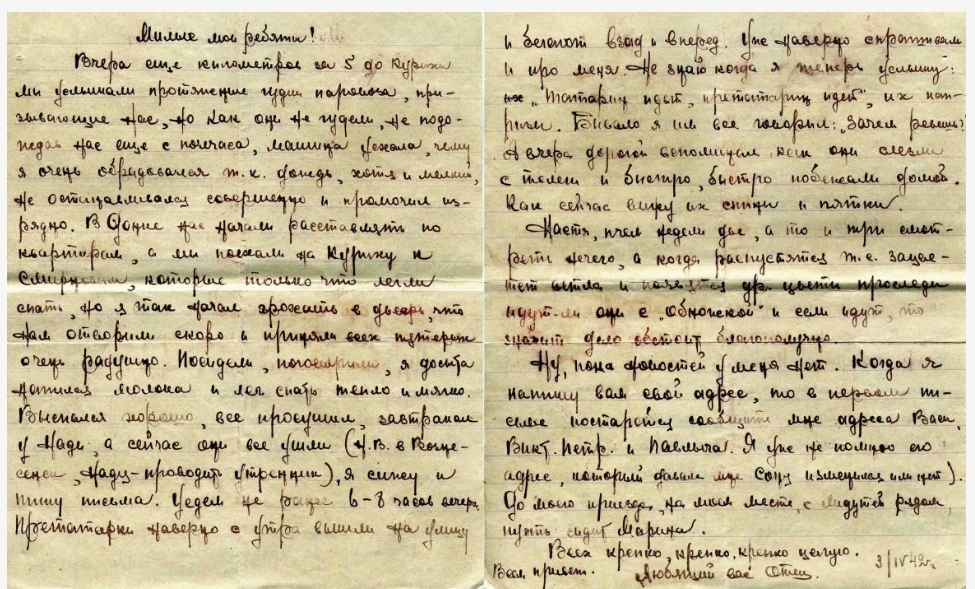 Милые мои ребята!
Вчера еще километров за 5 до Курихи
мы услышали протяжные гудки паровоза, при-
зывающие нас, но как они не гудели, не подо-
ждав нас еще с полчаса, машина уехала, чему
я очень обрадовался т.к. дождь, хотя и мелкий,
не останавливался совершенно и промочил из-
рядно. В нас начали расставлять по
квартирам, а мы поехали на Куриху к
которые только что легли
спать, но я так начал грохать в дверь, что
нам отворили скоро и приняли всех
очень радушно. Посидели, поговорили, я
напился молока и лег спать тепло и мягко.
Выспался хорошо, все просушил, завтракал
у Нади, а сейчас они все ушли (Н.В. в Возне-
сенск, Надя-проводить утренник), я сижу и
пишу письма. Уедем не ранее 6-8 часов вечера.
наверно с утра вышли на улицу
и бегают взад и вперед. Уже наверно спрашивали
и про меня. Не знаю когда я теперь услышу:
идет, идет", их кап-
ризы. Бывало я им все говорил: „Зачем ревешь?
А вчера дорогой вспоминал, как они слезли
с телеги и быстро, быстро побежали домой.
Как сейчас вижу их спины и пятки.
Настя, пчел недели две, а то и три смот-
реть нечего, а когда распустятся т.е. зацве-
тет ветла и появятся др. цветы проследи
идут-ли они с „Обножской" и если идут, то
значит дело обстоит благополучно.
Ну, пока новостей у меня нет. Когда я
напишу вам свой адрес, то в первом пи-
сьме постарайся сообщить мне адреса Васи,
Викт. Петр. и Павлыча. Я уже не помню его
адрес, который давала мне Соня изменился или нет).
До моего приезда, на моем месте, с рядом,
пусть сидит Марина.
Всех крепко, крепко, крепко целую.
Всем привет. Любящий вас Отец. 3/IV 42г.